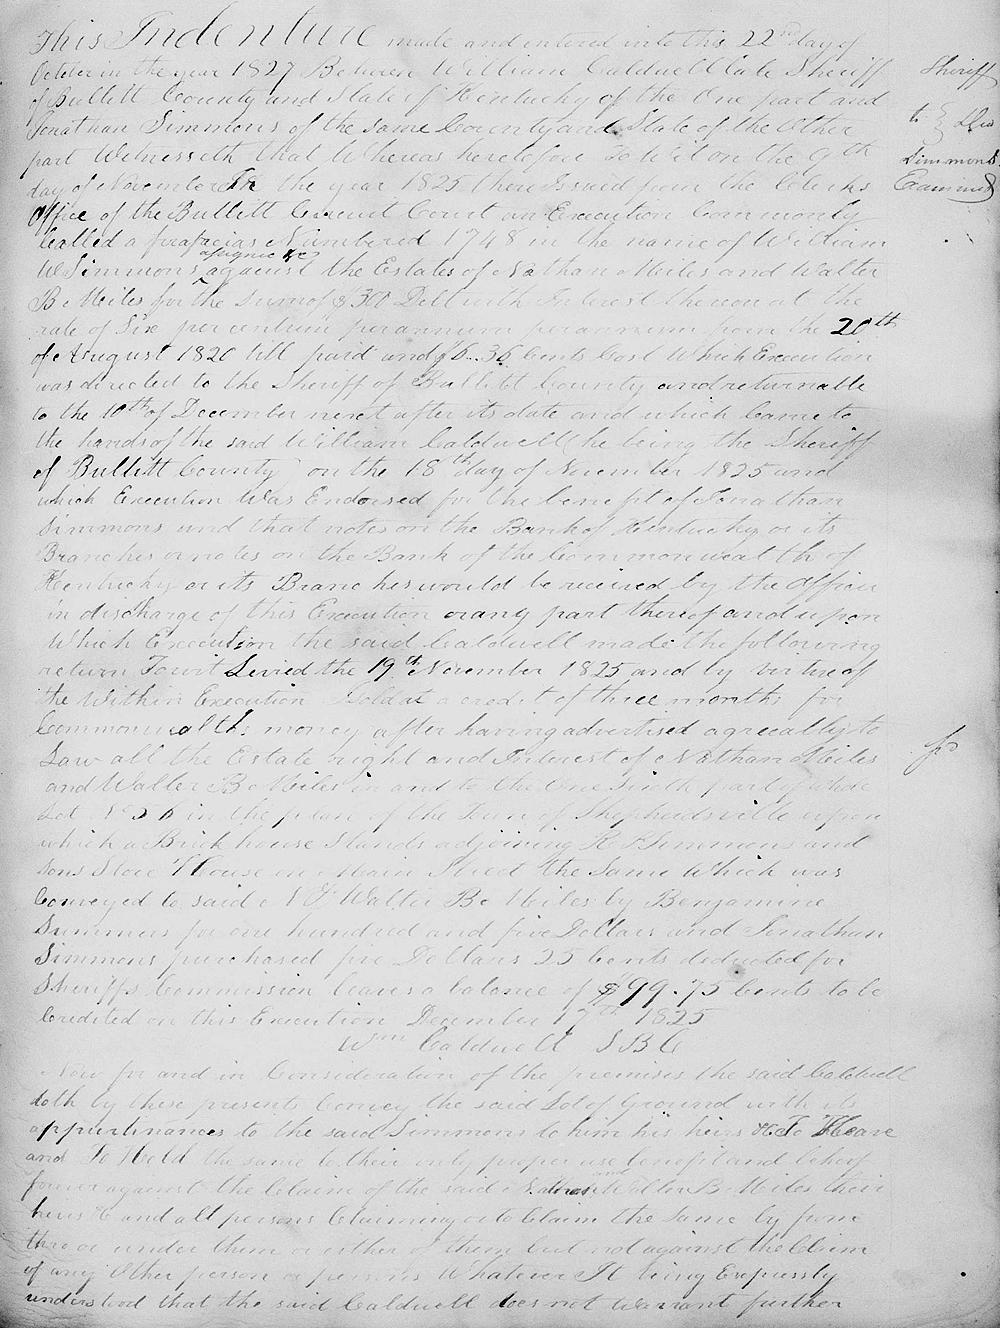 This Indenture made and entered into this 22nd day of
October in the year 1827 Between William Caldwell late Sheriff
of Bullitt County and State of Kentucky of the One part and
Jonathan Simmons of the same County and State of the Other
part Witnesseth that Whereas heretofore To Wit on the 9th
day of November In the year 1825 there Issued from the Clerks
Office of the Bullitt Circuit Court an Execution Commonly
Called a firafacias Numbered 1748 in the name of William
W Simmons assignee &c against the Estates of Nathan Miles and Walter
B Miles for the Sum of $300 Debt with Interest thereon at the
rate of Six per centum per annum per annum from the 20th
of August 1820 till paid and $6..36 Cents Cost Which Execution
was directed to the Sheriff of Bullitt County and returnable
to the 10th of December next after its date and which Came to
the hands of the said William Caldwell (he being the Sheriff
of Bullitt County) on the 18th day of November 1825 and
which Execution Was Endorsed for the benefit of Jonathan
Simmons and that notes on the Bank of Kentucky or its
Branches or notes on the Bank of the Commonwealth of
Kentucky or its Branches would be received by the Officer
in discharge of this Execution or any part thereof and upon
Which Execution the said Caldwell made the following
return Towit Levied the 19th November 1825 and by virtue of
the Within Execution Sold at a credit of three months for
Commonwealths money after having advertised agreeably to
Law all the Estate right and Interest of Nathan Miles
and Walter B Miles in and to the One Sixth part of whole
Lot No 56 in the plan of the Town of Shepherdsville upon
which a Brick house Stands adjoining R Simmons and
sons Store House on Main Street the Same Which was
Conveyed to said N & Walter B Miles by Benjamine
Summers for one hundred and five Dollars and Jonathan
Simmons purchased five Dollars 25 Cents deducted for
Sheriffs Commission leaves a balance of $99.75 Cents to be
Credited on this Execution December 17th 1825
Wm Caldwell SBC
Now for and in Consideration of the premises the said Caldwell
doth by these presents Convey the said Lot of Ground with its
appurtinances to the said Simmons to him his heirs &c To Have
and To Hold the same to their only proper use benefit and behoof
forever against the Claim of the said Nathan & Walter B Miles their
heirs &c and all persons Claiming or to Claim the Same by from
thro or under them or either of them but not against the Claim
of any Other person or persons Whatever It being Expressly
understood that the said Caldwell does not warrant further
Sheriff
to } Deed
Simmons
Examined